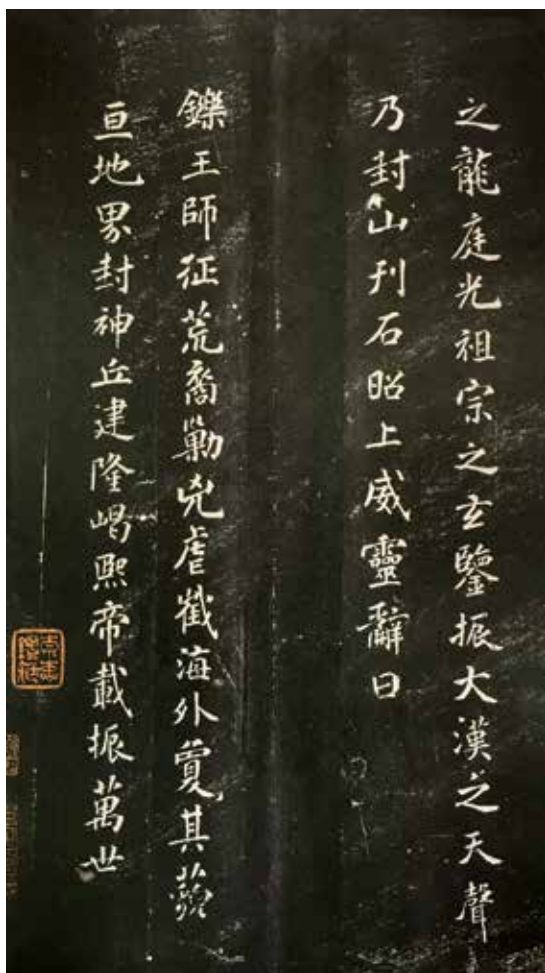 之龍庭光祖宗之玄鑒振大漢之天聲
乃封山刊石昭上威靈辭曰
鑠王師征荒裔勦兇虐截海外敻其
亘地界封神丘建隆嵑熙帝載振萬世